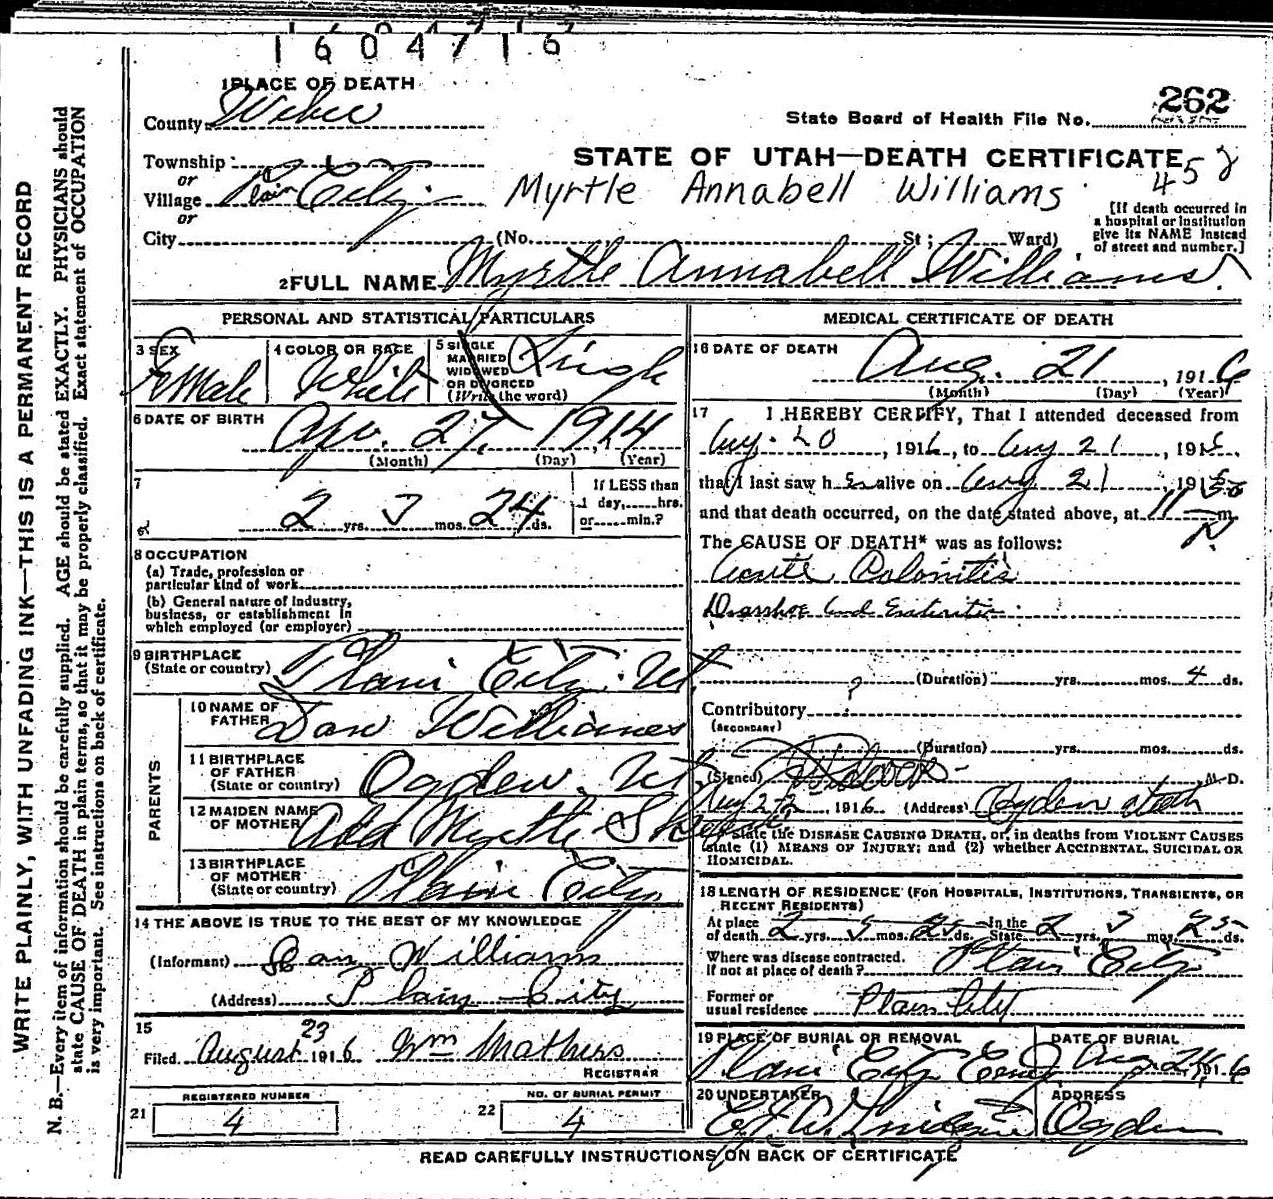 1604716
1 PLACE OF DEATH
262
County Weber
State Board of Health File No.
Township
STATE OF UTAH—DEATH CERTIFICATE
or
452
Village Plain City
Myrtle Annabell Williams
or
[If death occurred in
a hospital or institution
give its NAME instead
of street and number.]
City (No. St; Ward)
2 FULL NAME Myrtle Annabell Williams
PERSONAL AND STATISTICAL PARTICULARS
3 SEX Female
4 COLOR OR RACE White
5 SINGLE
MARRIED
WIDOWED
OR DIVORCED
(Write the word) Single
6 DATE OF BIRTH Apr. 27, 1914
(Month) (Day) (Year)
7
2 yrs. 3 mos. 24 ds.
If LESS than
1 day, hrs.
or min.?
8 OCCUPATION
(a) Trade, profession or
particular kind of work
(b) General nature of industry,
business, or establishment in
which employed (or employer)
9 BIRTHPLACE
(State or country) Plain City. Ut
PARENTS
10 NAME OF
FATHER Dan Williams
11 BIRTHPLACE
OF FATHER
(State or country) Ogden. Ut
12 MAIDEN NAME
OF MOTHER Ada Myrtle
13 BIRTHPLACE
OF MOTHER
(State or country) Plain City
14 THE ABOVE IS TRUE TO THE BEST OF MY KNOWLEDGE
(Informant) Dan Williams
(Address) Plain City
15
Filed August 23 1916 Wm Mathers
REGISTRAR
21 REGISTERED NUMBER
4
22 NO. OF BURIAL PERMIT
4
MEDICAL CERTIFICATE OF DEATH
16 DATE OF DEATH
Aug. 21, 1916
(Month) (Day) (Year)
17 I HEREBY CERTIFY, That I attended deceased from
Aug. 20, 1916, to Aug 21, 1916.
that I last saw her alive on Aug 21 191
and that death occurred, on the date stated above, at 11 m.
The CAUSE OF DEATH* was as follows:
Acute Colonitis
and Enteritis
(Duration) yrs. mos. 4 ds.
Contributory
(SECONDARY)
(Duration) yrs. mos. ds.
(Signed) M. D.
Aug 22, 1916 (Address) Ogden Utah
State the DISEASE CAUSING DEATH, or, in deaths from VIOLENT CAUSES
state (1) MEANS OF INJURY; and (2) whether ACCIDENTAL, SUICIDAL OR
HOMICIDAL.
18 LENGTH OF RESIDENCE (FOR HOSPITALS, INSTITUTIONS, TRANSIENTS, OR
RECENT RESIDENTS)
At place
of death 2 yrs. 3 mos. 25 ds. In the
State 2 yrs. 3 mos. 25 ds.
Where was disease contracted.
If not at place of death? Plain City
Former or
usual residence Plain City
19 PLACE OF BURIAL OR REMOVAL
Plain City Cem
DATE OF BURIAL
Aug. 24, 1916
20 UNDERTAKER
ADDRESS
Ogden
READ CAREFULLY INSTRUCTIONS ON BACK OF CERTIFICATE
WRITE PLAINLY, WITH UNFADING INK—THIS IS A PERMANENT RECORD
N. B.—Every item of information should be carefully supplied. AGE should be stated EXACTLY. PHYSICIANS should
state CAUSE OF DEATH in plain terms, so that it may be properly classified. Exact statement of OCCUPATION
is very important. See instructions on back of certificate.